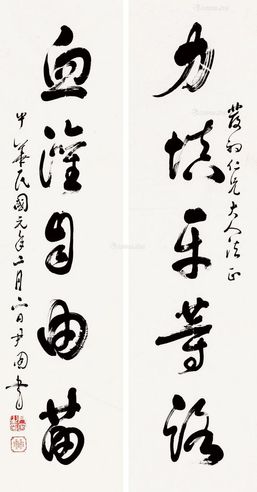 初仁兄大人法正
力填平等路
血灌自由苗
中華民國元年二月六日尹書